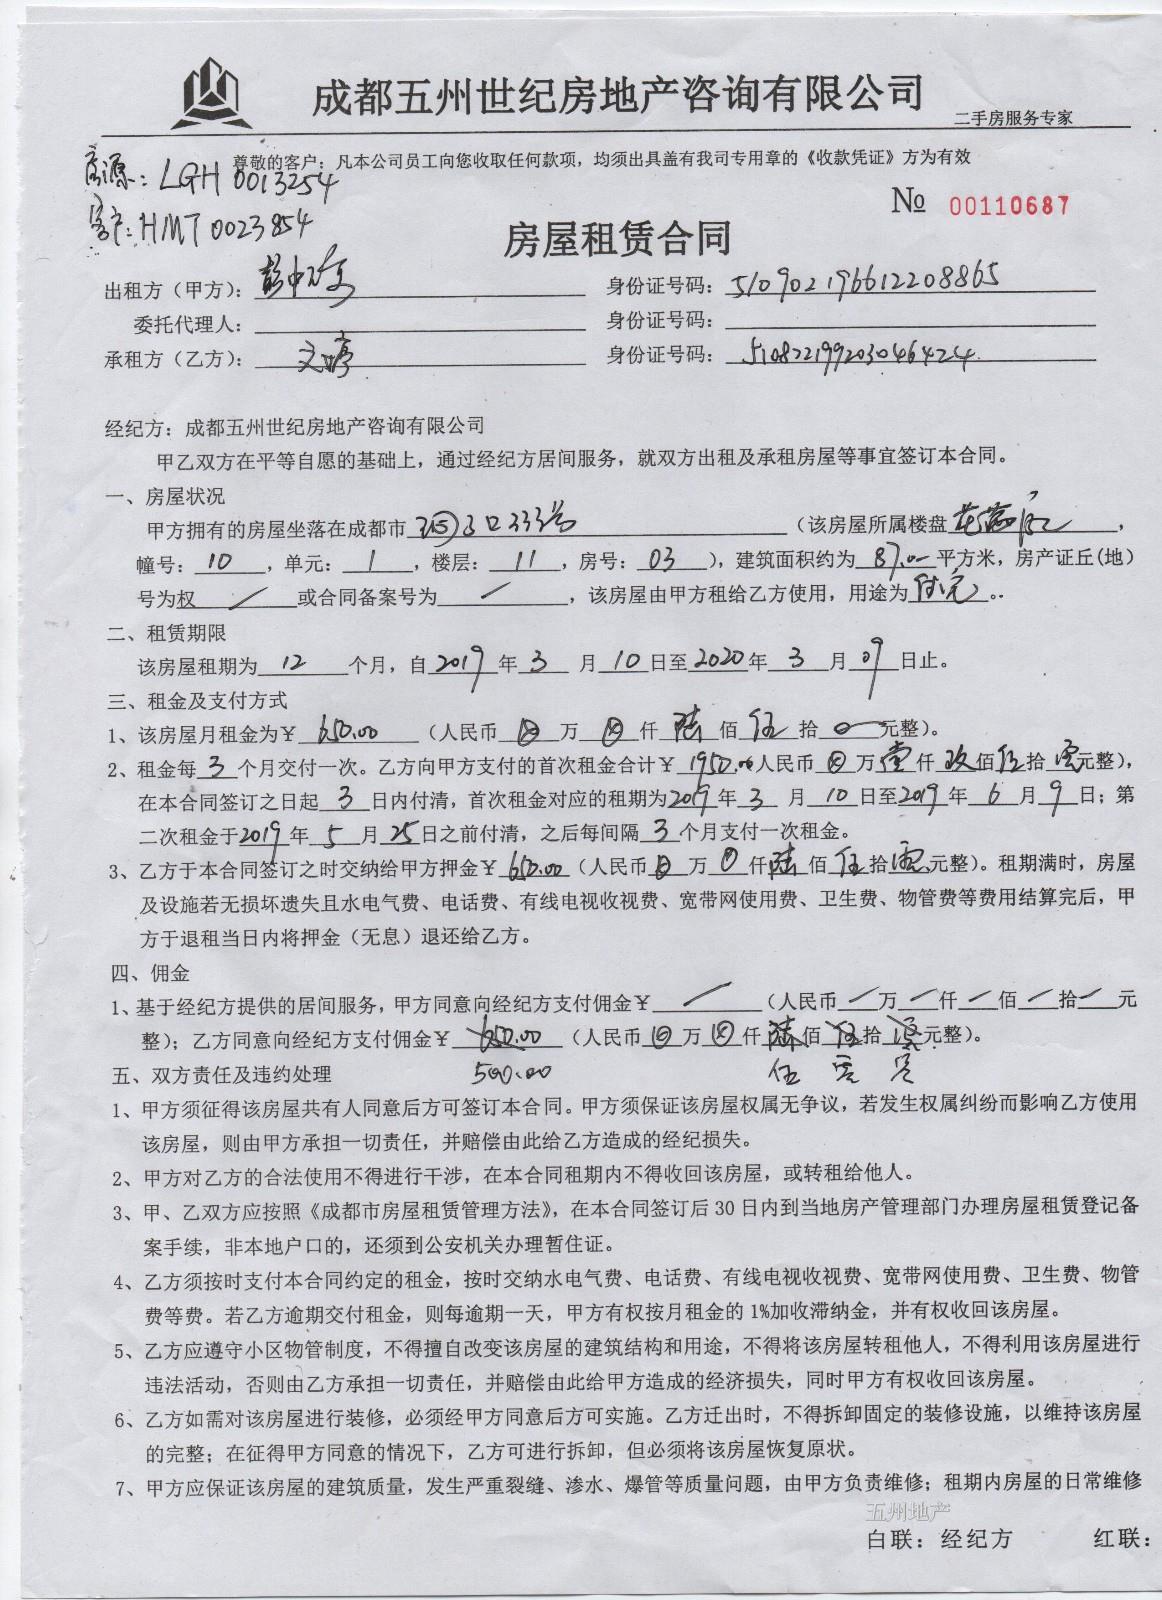 成都五州世纪房地产咨询有限公司
二手房服务专家
尊敬的客户：凡本公司员工向您收取任何款项，均须出具盖有我司专用章的《收款凭证》方为有效
房源：LGH 0013254
客户：HMT 0023854
№ 00110687
房屋租赁合同
出租方（甲方）： 身份证号码：510902196612208865
委托代理人： 身份证号码：
承租方（乙方）：文婷 身份证号码：510822199203046424
经纪方：成都五州世纪房地产咨询有限公司
甲乙双方在平等自愿的基础上，通过经纪方居间服务，就双方出租及承租房屋等事宜签订本合同。
一、房屋状况
甲方拥有的房屋坐落在成都市 333号（该房屋所属楼盘 ，
幢号：10，单元：1，楼层：11，房号：03），建筑面积约为87.00平方米，房产证丘(地)
号为权 / 或合同备案号为 / ，该房屋由甲方租给乙方使用，用途为住宅。
二、租赁期限
该房屋租期为12个月，自2019年3月10日至2020年3月09日止。
三、租金及支付方式
1、该房屋月租金为￥650.00（人民币 万 仟陆佰伍拾0元整）。
2、租金每3个月交付一次。乙方向甲方支付的首次租金合计￥1950.00人民币 万壹仟玖佰伍拾零元整），
在本合同签订之日起3日内付清，首次租金对应的租期为2019年3月10日至2019年6月9日；第
二次租金于2019年5月25日之前付清，之后每间隔3个月支付一次租金。
3、乙方于本合同签订之时交纳给甲方押金￥650.00（人民币 万 仟陆佰伍拾零元整）。租期满时，房屋
及设施若无损坏遗失且水电气费、电话费、有线电视收视费、宽带网使用费、卫生费、物管费等费用结算完后，甲
方于退租当日内将押金（无息）退还给乙方。
四、佣金
1、基于经纪方提供的居间服务，甲方同意向经纪方支付佣金￥ / （人民币/万/仟/佰/拾/元
整）；乙方同意向经纪方支付佣金￥650.00（人民币 万 仟陆佰伍拾零元整）。
500.00 伍 零 零
五、双方责任及违约处理
1、甲方须征得该房屋共有人同意后方可签订本合同。甲方须保证该房屋权属无争议，若发生权属纠纷而影响乙方使用
该房屋，则由甲方承担一切责任，并赔偿由此给乙方造成的经纪损失。
2、甲方对乙方的合法使用不得进行干涉，在本合同租期内不得收回该房屋，或转租给他人。
3、甲、乙双方应按照《成都市房屋租赁管理方法》，在本合同签订后30日内到当地房产管理部门办理房屋租赁登记备
案手续，非本地户口的，还须到公安机关办理暂住证。
4、乙方须按时支付本合同约定的租金，按时交纳水电气费、电话费、有线电视收视费、宽带网使用费、卫生费、物管
费等费。若乙方逾期交付租金，则每逾期一天，甲方有权按月租金的1%加收滞纳金，并有权收回该房屋。
5、乙方应遵守小区物管制度，不得擅自改变该房屋的建筑结构和用途，不得将该房屋转租他人，不得利用该房屋进行
违法活动，否则由乙方承担一切责任，并赔偿由此给甲方造成的经济损失，同时甲方有权收回该房屋。
6、乙方如需对该房屋进行装修，必须经甲方同意后方可实施。乙方迁出时，不得拆卸固定的装修设施，以维持该房屋
的完整；在征得甲方同意的情况下，乙方可进行拆卸，但必须将该房屋恢复原状。
7、甲方应保证该房屋的建筑质量，发生严重裂缝、渗水、爆管等质量问题，由甲方负责维修；租期内房屋的日常维修
五州地产
白联：经纪方 红联：